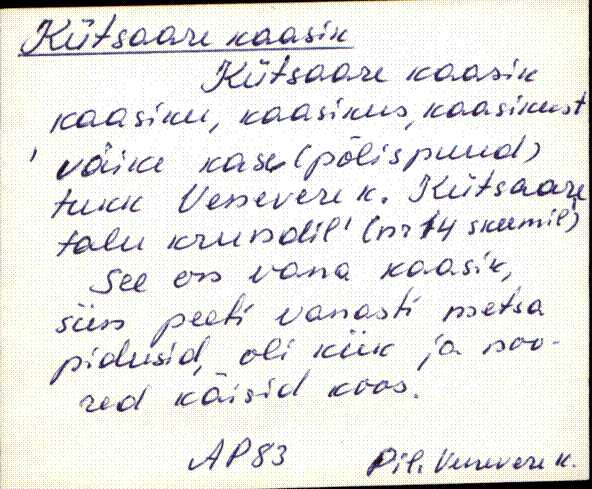 Kütsaare kaasik
Kütsaare kaasik
kaasiku, kaasikus, kaasikust
' väike kase (põlispuud)
tukk Venevere k. Kütsaare
talu krundil' (nr 14 skeemil)
See on vana kaasik,
siin peeti vanasti metsa
pidusid, oli kiik ja noo-
red käisid koos.
AP83 Pil. Venevere k.